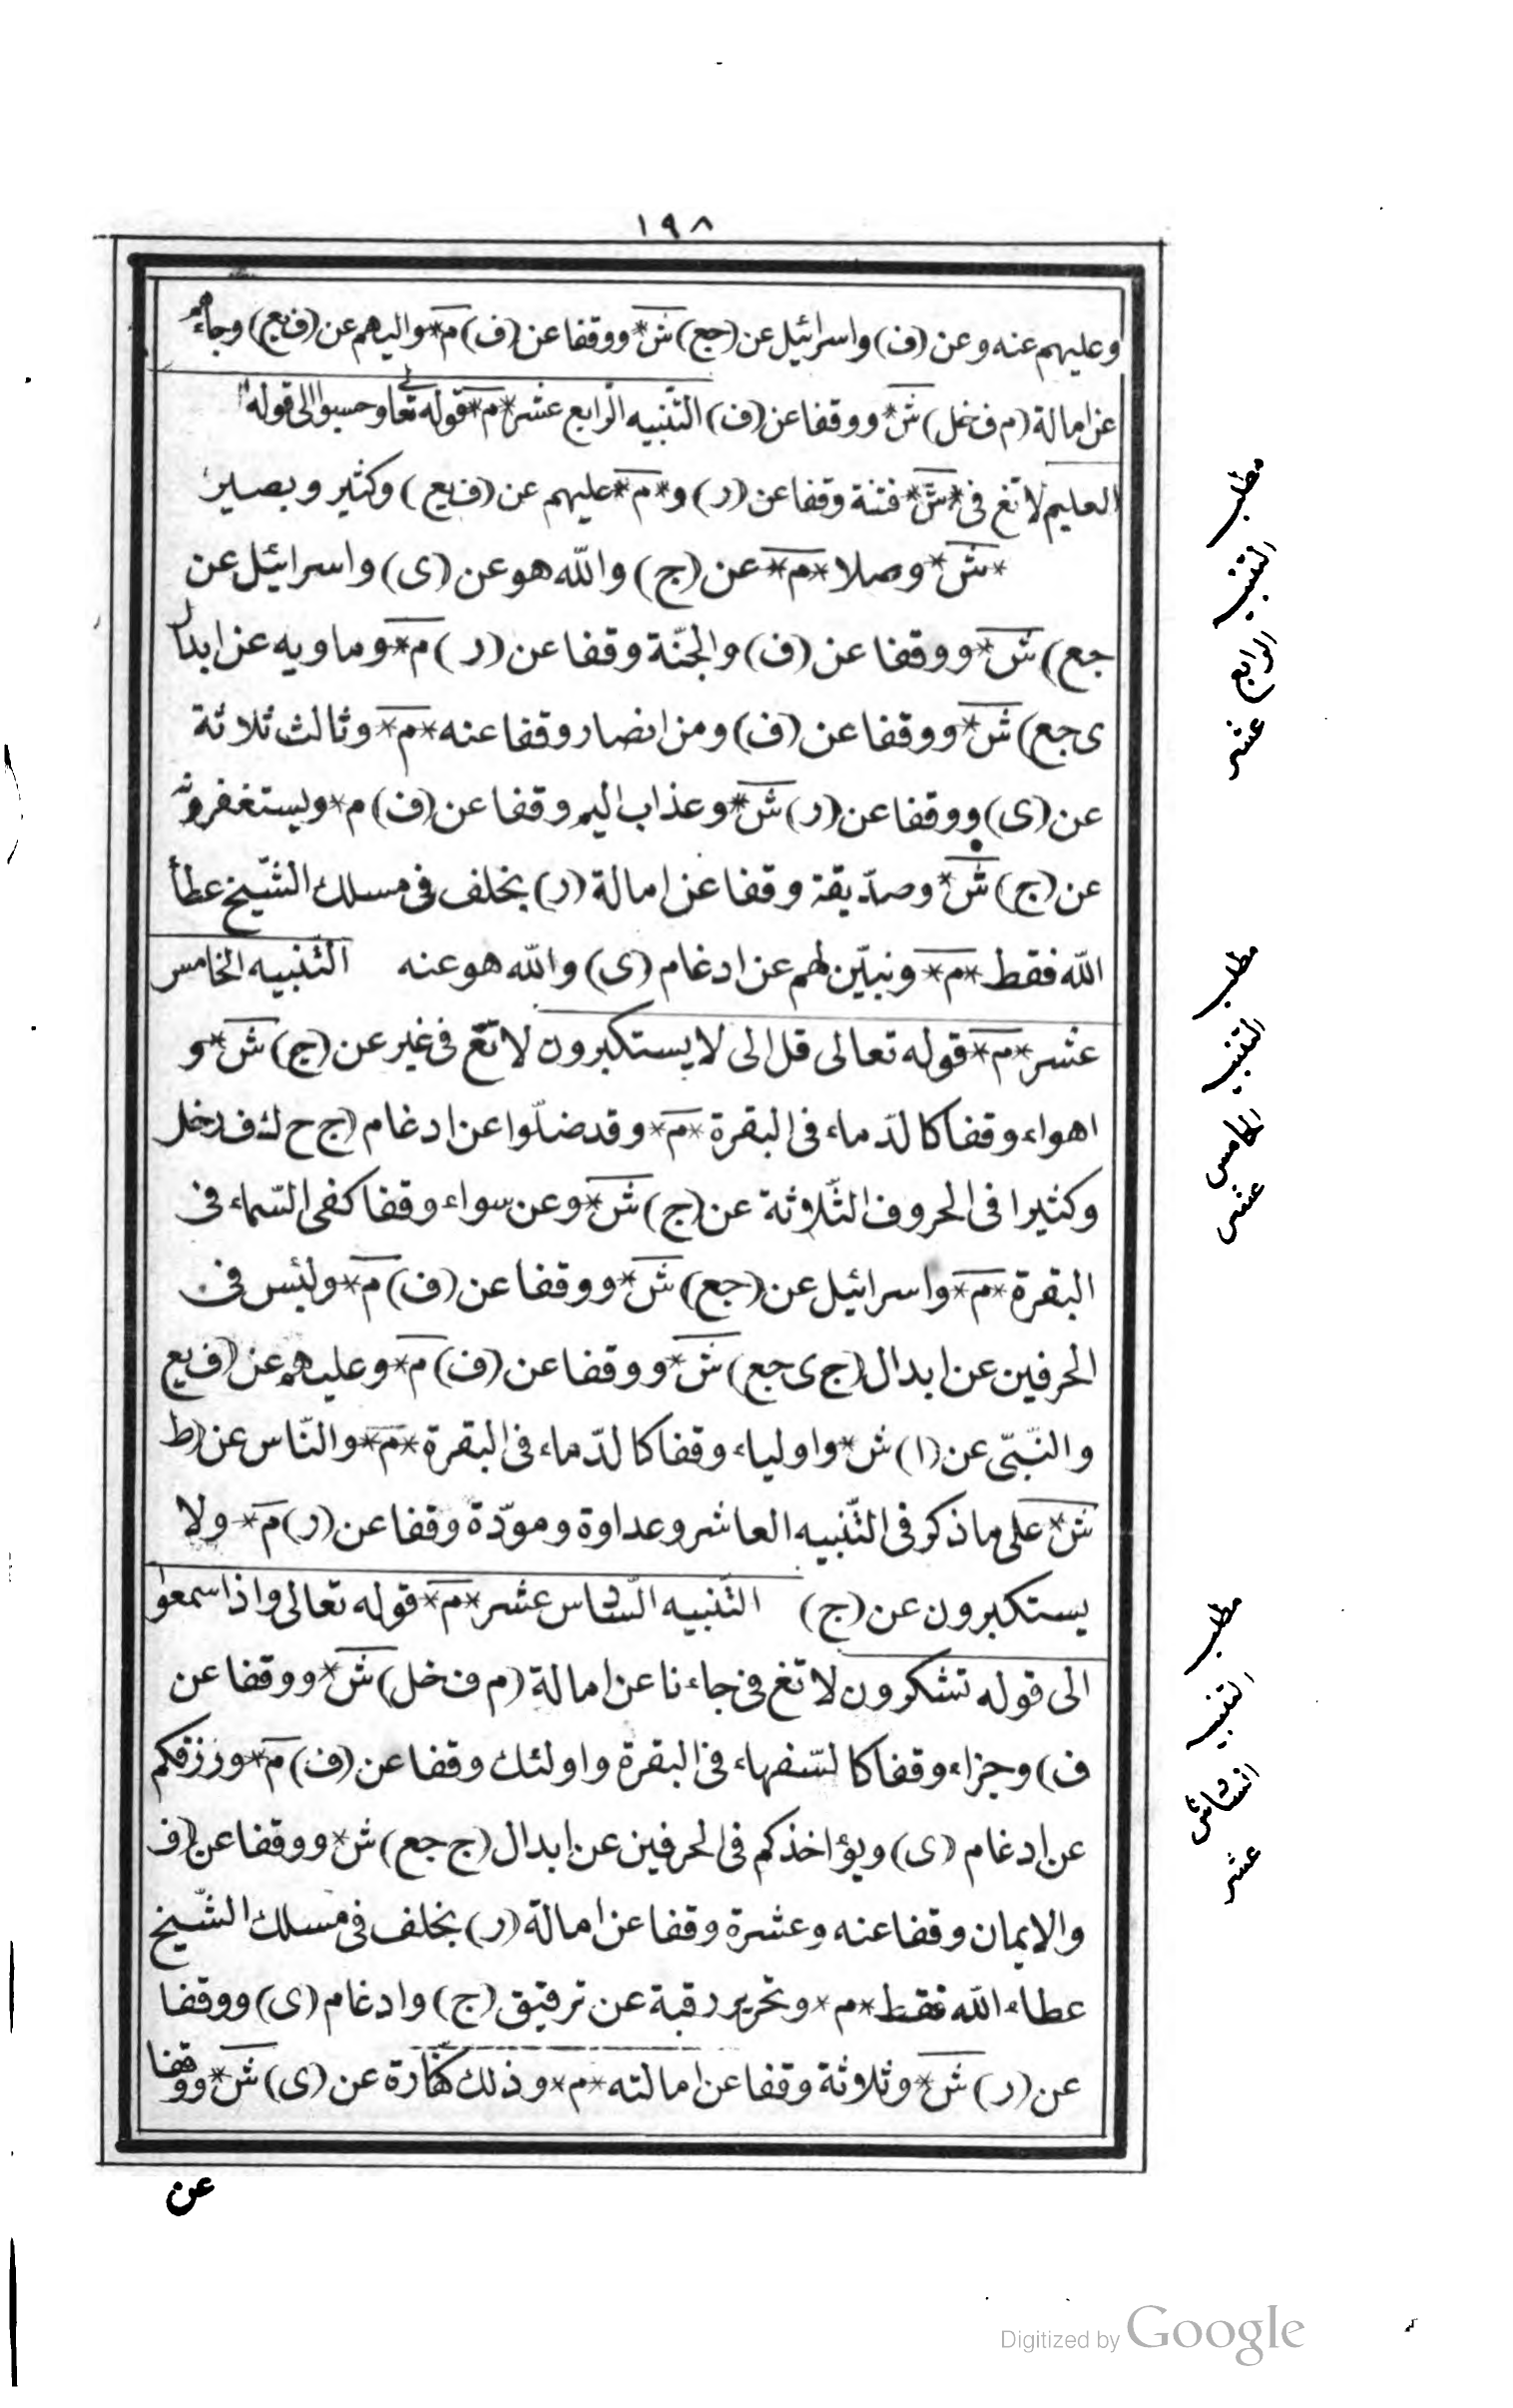 ١٩٨
وعليهم عنه وعن (ف) واسرائيل عن (جع) ش* ووقفا عن (ف) م* واليهم عن (ف يع) وجاءهم
عن امالة (م ف خل) ش* ووقفا عن (ف) التّنبيه الرّابع عشر* م* قوله تعالى وحسبوا الى قوله
العليم لا تغ فى* ش* فتنة وقفا عن (ر) و* م* عليهم عن (ف يع) وكثير وبصير
* ش* وصلا* م* عن (ج) والله هو عن (ى) واسرائيل عن
جع) ش* ووقفا عن (ف) والجنّة وقفا عن (ر) م* وماويه عن ابدال
ى جع) ش* ووقفا عن (ف) ومن انصار وقفا عنه* م* وثالث ثلاثة
عن (ى) ووقفا عن (ر) ش* وعذاب اليم وقفا عن (ف) م* ويستغفرونه
عن (ج) ش* وصدّيقة وقفا عن امالة (ر) بخلف فى مسلك الشّيخ عطاء
الله فقط* م* ونبيّن لهم عن ادغام (ى) والله هو عنه التّنبيه الخامس
عشر* م* قوله تعالى قل الى لا يستكبرون لا تغ فى غير عن (ج) ش* و
اهواء وقفا كالدّماء فى البقرة* م* وقد ضلّوا عن ادغام (ج ح ك ف ر خل
وكثيرا فى الحروف الثّلاثة عن (ج) ش* وعن سواء وقفا كفى السّماء فى
البقرة* م* واسرائيل عن (جع) ش* ووقفا عن (ف) م* ولبئس فى
الحرفين عن ابدال (ج ى جع) ش* ووقفا عن (ف) م* وعليهم عن (ف يع
والنّبىّ عن (ا) ش* واولياء وقفا كالدّماء فى البقرة* م* والنّاس عن (ط
ش* على ما ذكر فى التّنبيه العاشر وعداوة ومودّة وقفا عن (ر) م* ولا
يستكبرون عن (ج) التّنبيه السّادس عشر* م* قوله تعالى واذا سمعوا
الى قوله تشكرون لا تغ فى جاءنا عن امالة (م ف خل) ش* ووقفا عن
ف) وجزاء وقفا كالسّفهاء فى البقرة واولئك وقفا عن (ف) م* ورزقكم
عن ادغام (ى) ويؤاخذكم فى الحرفين عن ابدال (ج جع) ش* ووقفا عن (ف
والايمان وقفا عنه وعشرة وقفا عن امالة (ر) بخلف فى مسلك الشّيخ
عطاء الله فقط* م* وتحرير رقبة عن ترقيق (ج) وادغام (ى) ووقفا
عن (ر) ش* وثلاثة وقفا عن امالته* م* وذلك كفّارة عن (ى) ش* ووقفا
عن
مطلب
التنبيه
الرابع
عشر
مطلب
التنبيه
الخامس
عشر
مطلب
التنبيه
السادس
عشر
Digitized by Google